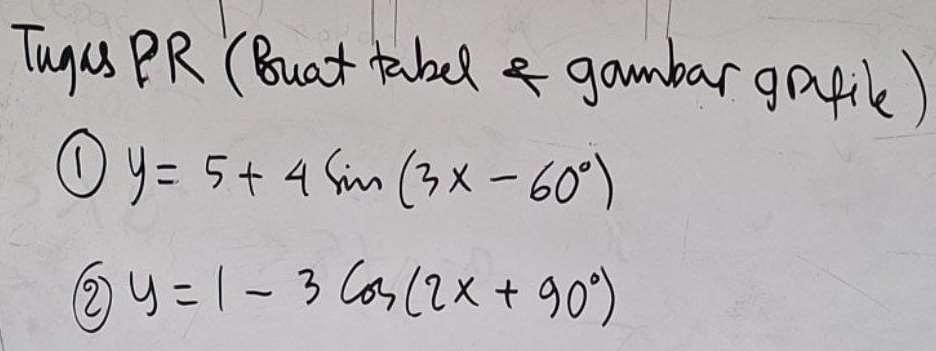 Tugas PR (Buat tabel & gambar grafik)
① y = 5 + 4 Sin (3x - 60°)
② y = 1 - 3 Cos (2x + 90°)